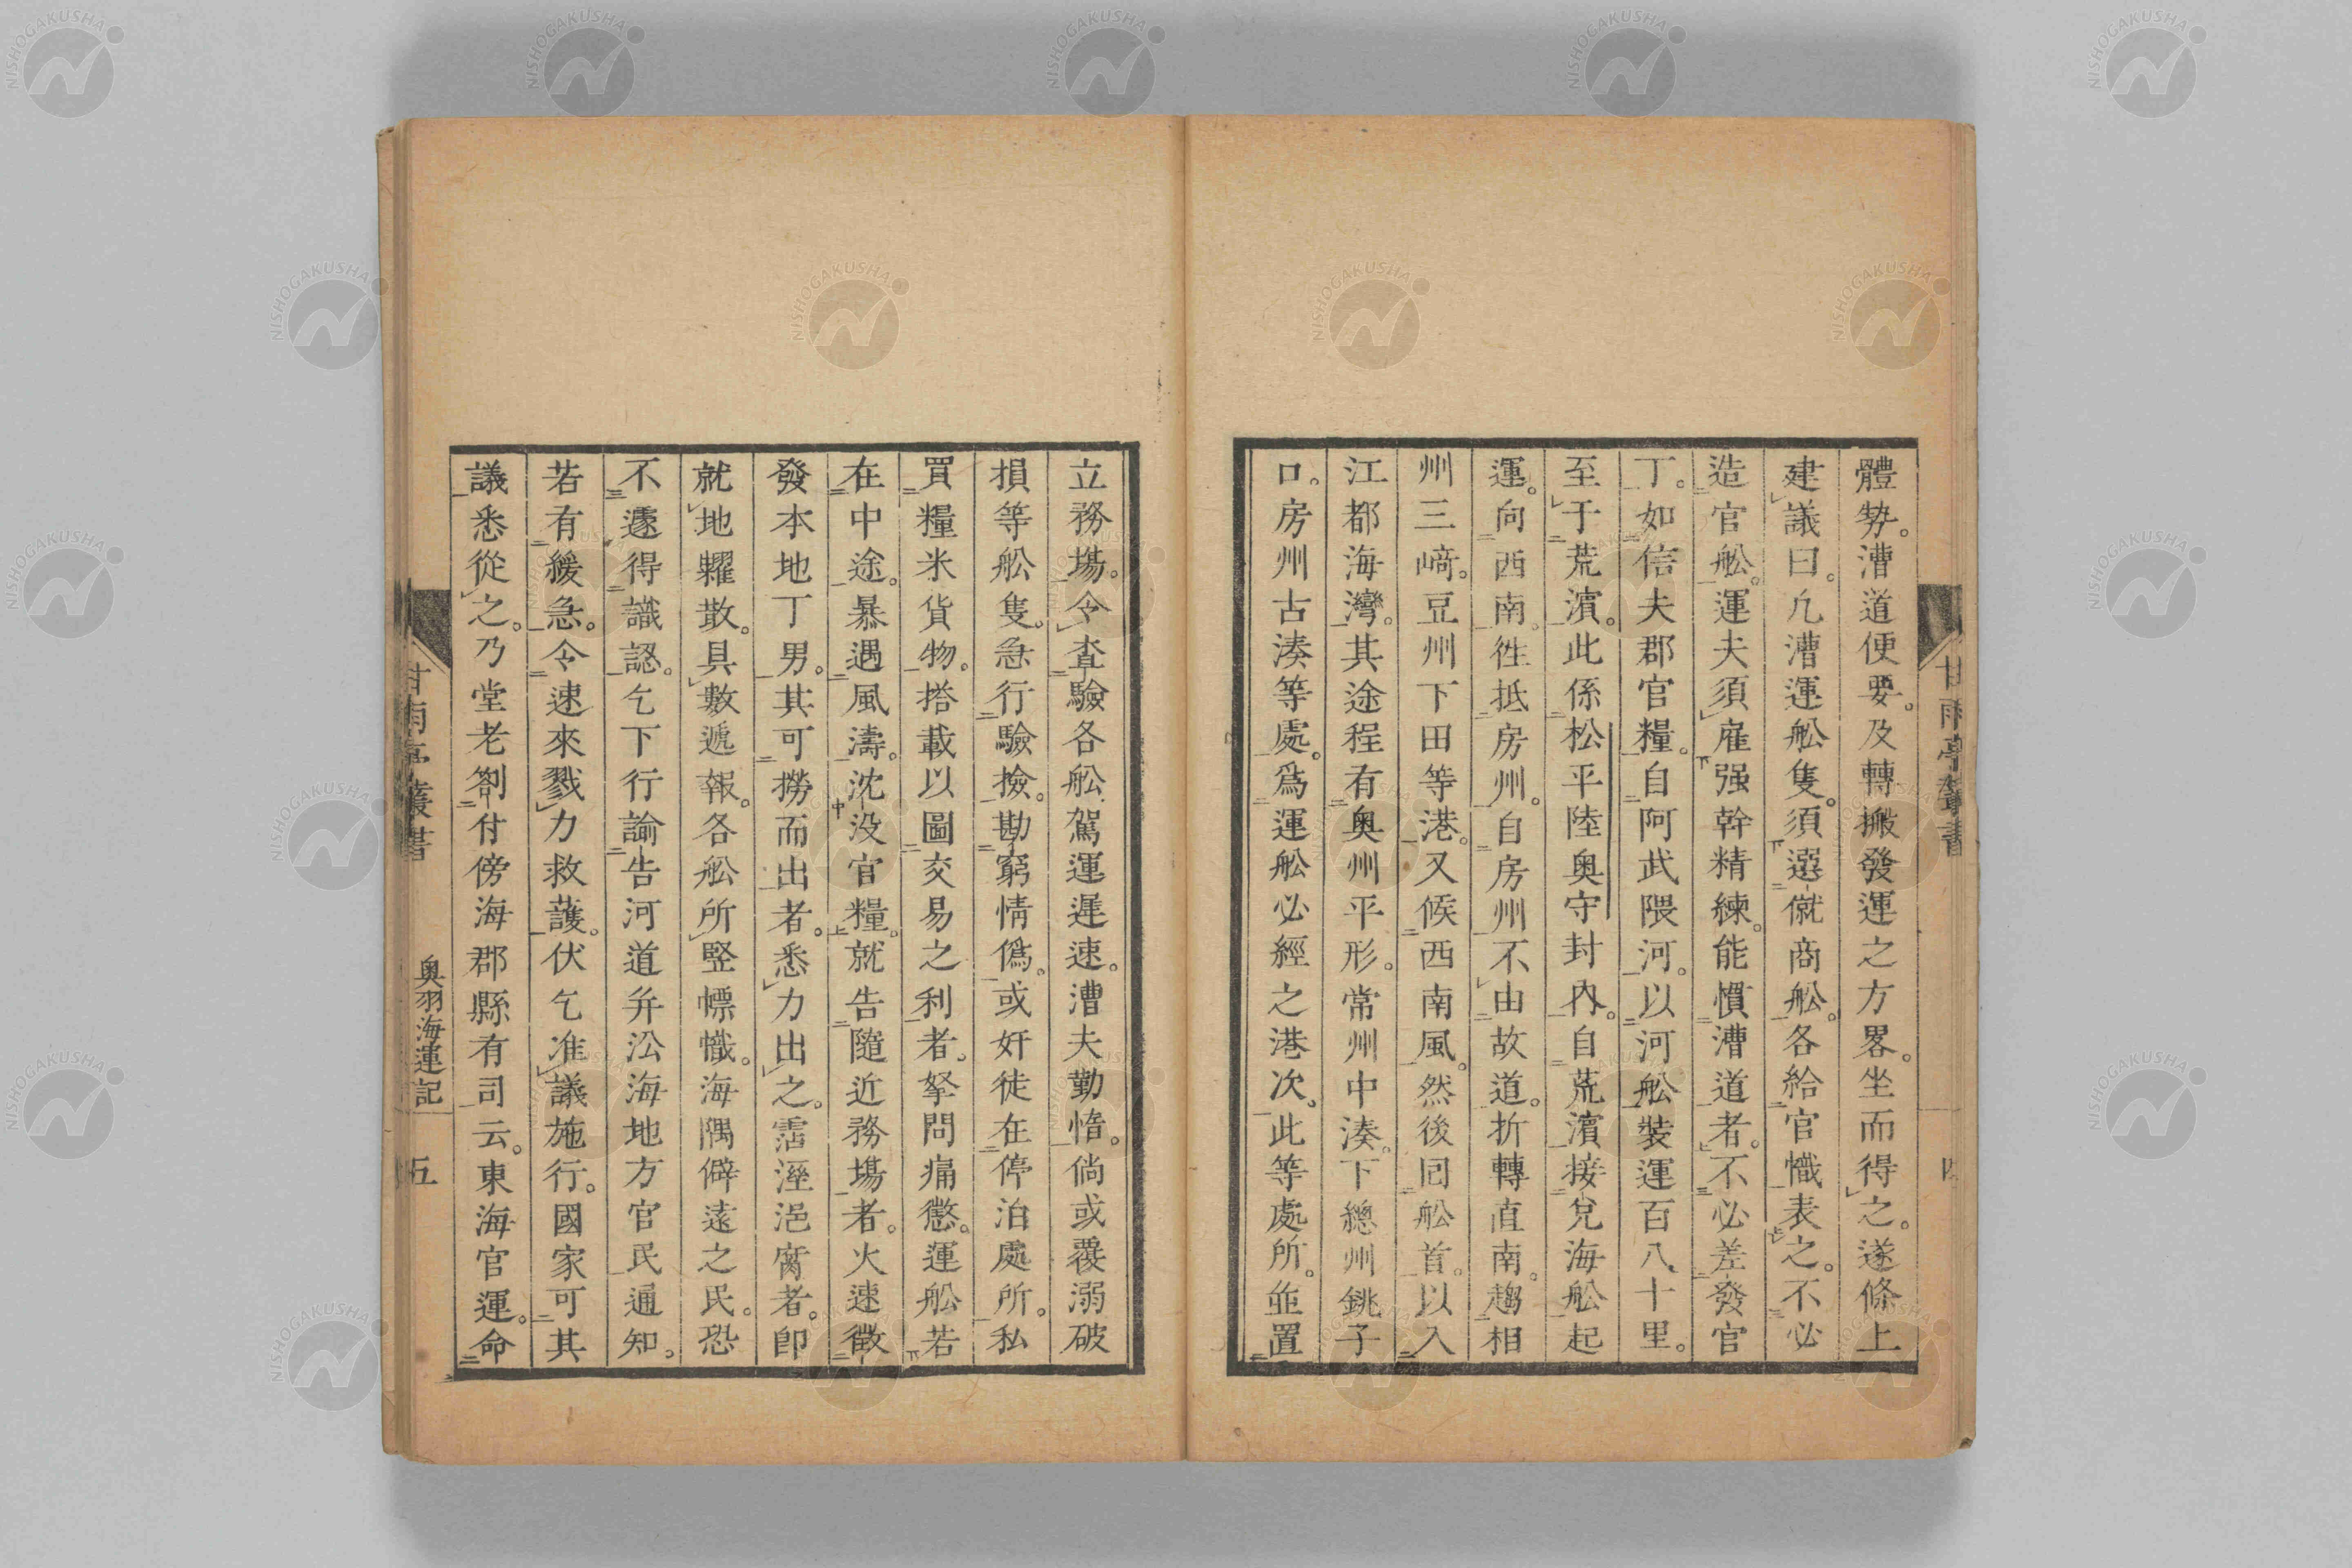 體勢。漕道便要。及轉搬發運之方畧。坐而得之。遂條上
建議曰。凢漕運舩隻。須選僦商舩。各給官幟表之。不必
造官舩。運夫須雇强幹精練。能慣漕道者。不必差發官
丁。如信夫郡官糧。自阿武隈河。以河舩裝運百八十里。
至于荒濱。此係松平陸奥守封内。自荒濱接兌海舩起
運。向西南徃抵房州。自房州不由故道。折轉直南。趨相
州三﨑。豆州下田等港。又候西南風。然後囘舩首。以入
江都海灣。其途程有奥州平形。常州中湊。下總州銚子
口。房州古湊等處。爲運舩必經之港次。此等處所。並置
立務塲。令査驗各舩駕運遲速。漕夫勤惰。倘或覆溺破
損等舩隻。急行驗撿。勘窮情僞。或奸徒在停泊處所。私
買糧米貨物。搭載以圖交易之利者。拏問痛懲。運舩若
在中途。暴遇風濤。沈没官糧。就告隨近務塲者。火速徵
發本地丁男。其可撈而出者。悉力出之。霑溼浥腐者。卽
就地糶散。具數遞報。各舩所竪幖幟。海隅僻遠之民。恐
不遽得識認。乞下行諭告河道并㳂海地方官民通知。
若有緩急。令速來戮力救護。伏乞准議施行。國家可其
議悉從之。乃堂老劄付傍海郡縣有司云。東海官運。命
甘雨亭叢書
四
甘雨亭叢書
奥羽海運記
五
NISHOGAKUSHA